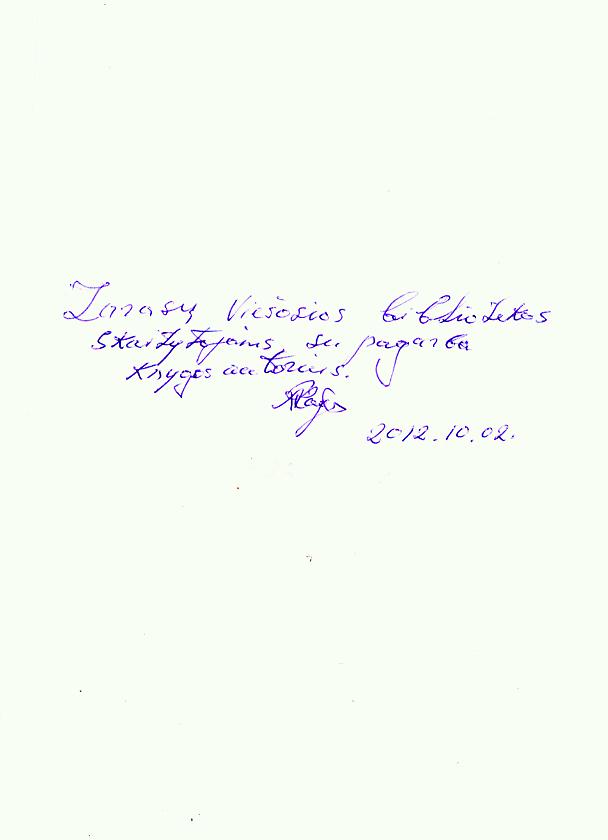 Zarasų Viešosios bibliotekos
skaitytojams su pagarba
Knygos autorius.
2012.10.02.